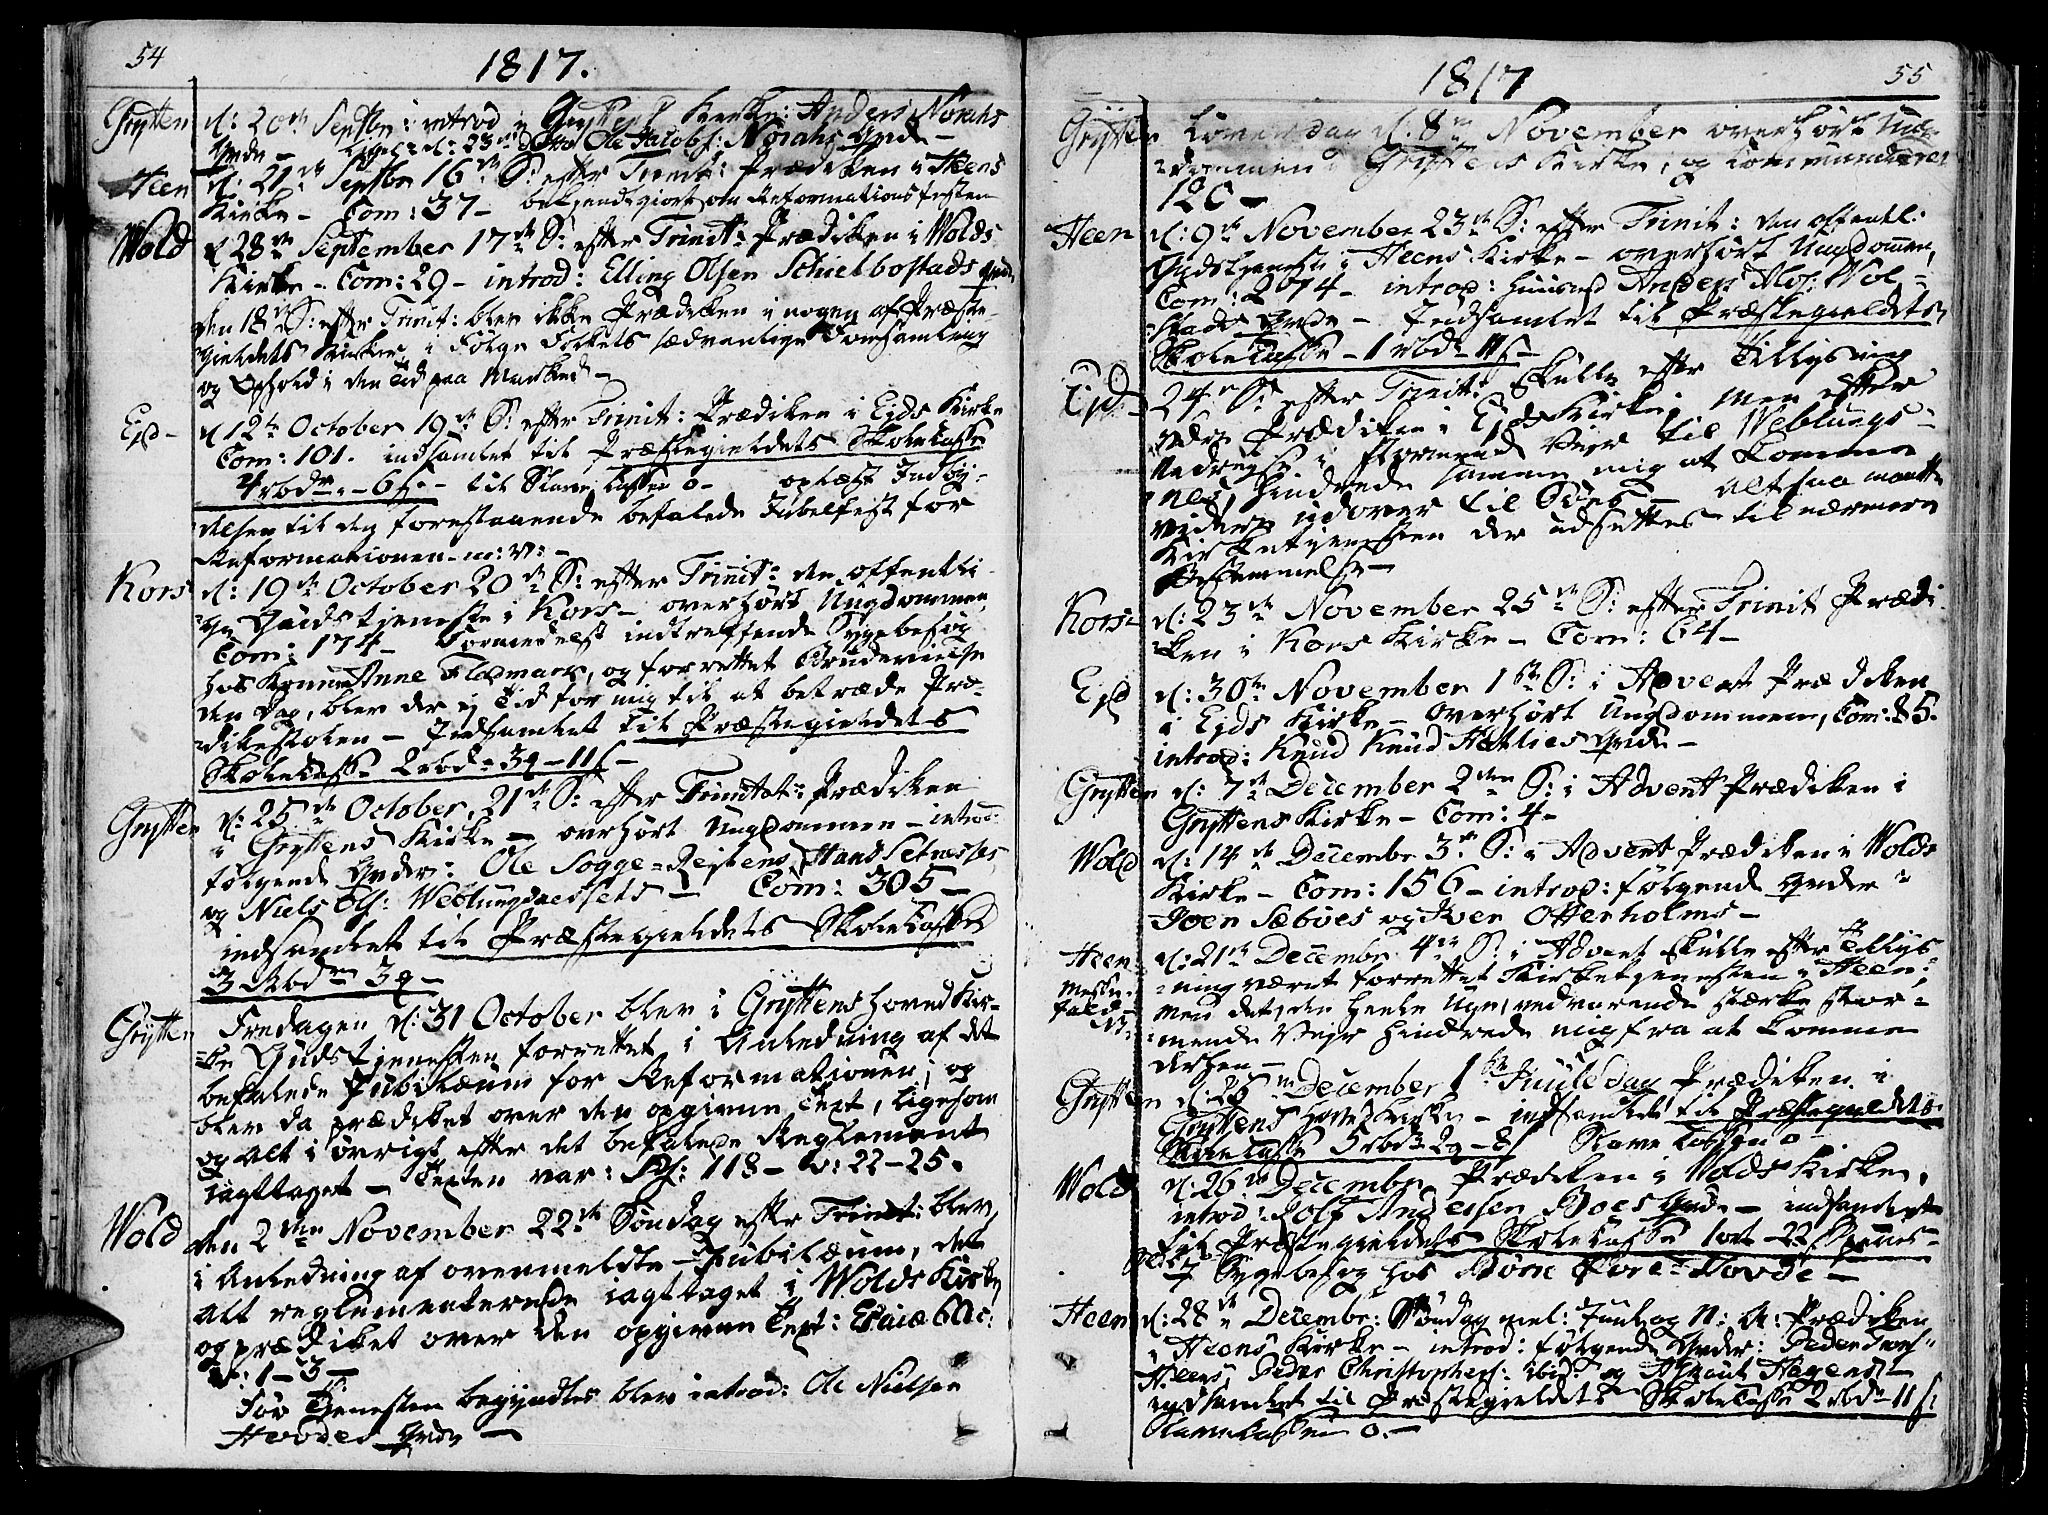 54
1817.
Grytten d: 20de Septbr: introd i Gryttens Kirke: Anders Norahs
Qvde — ligel: d: 23de do Ole Jacobs: Norahs Qvde —
Heen d: 21de Septbr 16de S: efter Trinit: Prædiken i Heens
Kirke — Com: 37 — bekjendtgiort om Reformationsfesten
Wold d 28de September 17de S: efter Trinit: Prædiken i Wolds
Kirke — Com: 29 — introd: Elling Olsen Schielbostads Qvde
den 18de S: efter Trinit: blev ikke Prædiken i nogen af Præste-
gieldets Kirker, i Følge Folkets sædvanlige Forsamling
og Ophold i den Tid paa Marked —
Ejd — d 12te October 19de S: efter Trinit: Prædiken i Ejds Kirke
Com: 101. indsamlet til Præstegieldets SkoleCasse
4 rbdr — 6 s. — til Slave Cassen 0 — oplæst Indby-
delsen til den forestaaende befalede Jubelfest for
Reformationen — m: v: —
Kors d: 19de October 20de S: efter Trinit: den offentli-
ge Gudstjeneste i Kors — overhørt Ungdommen,
Com: 174 — Formedelst indtreffende Sygebesøg
hos Konen Anne Fladmark, og forrettet Brudevielse
den Dag, blev der ej Tid for mig til at betræde Præ-
dikestolen — Indsamlet til Præstegieldets
SkoleCasse 2 rbd — 3q — 11 s —
Grytten d: 25de October, 21de S: efter Trinitat: Prædiken
i Gryttens Kirke — overhørt Ungdommen — introd:
følgende Qvder: Ole Sogge-Reistens, Hans Setnesses
og Niels Ols: Weblungsnessets — Com: 305 —
indsamlet til Præstegieldets SkoleCasse
3 Rbdr 3q —
Grytten Fredagen d: 31 October blev i Gryttens Hoved Kir-
ke Gudstjenesten forrettet i Anledning af det
befalede Jubilæum for Reformationen, og
blev da prædiket over den opgivne Text, ligesom
og Alt i øvrigt efter det befalede Reglement
iagttaget — Texten var: Ps: 118 — v: 22-25.
Wold den 2den November 22de Søndag efter Trinit: blev,
i Anledning af ovenmeldte Jubilæum, det
Alt reglementerede iagttaget i Wolds Kirke,
og prædiket over den opgivne Text: Esaiæ 60 c:
v: 1-3 —
Før Tjenesten begyndtes blev introd: Ole Nielsen
Hevdes Qvde —
1817
55
Grytten Løverdag d. 8de November overhørt Ung-
dommen i Gryttens Kirke, og Communicerer
120 —
Heen d: 9de November 23de S: efter Trinit: den offentl:
Gudstjeneste i Heens Kirke — overhørt Ungdommen,
Com: 2074 — introd: Huusmd Anders Mos: Wol-
stads Qvde — Indsamlet til Præstegieldets
SkoleCasse — 1 rbd — 11 s —
Ejd — 24de S: efter Trinit: skulle efter Tillysning
være Prædiken i Ejds Kirke; men efter
Udrejse i stormende Vejr til Weblungs-
nes, hindrede samme mig at komme
videre udover til Søes — Altsaa maatte
Kirketjenesten der udsættes til nærmere
Bestemmelse —
Kors — d: 23de November 25de S: efter Trinit Prædi
ken i Kors Kirke — Com: 64 —
Ejd d: 30te November 1ste S: i Advent Prædiken
i Ejds Kirke — Overhørt Ungdommen, Com: 85.
introd: Knud Knud Hatlies Qvde —
Grytten d: 7de December 2den S: i Advent Prædiken i
Gryttens Kirke — Com: 4 —
Wold d: 14de Decembr 3de S: i Advent Prædiken i Wolds
Kirke — Com: 156 — introd: følgende Qvder:
Iver Sæbøes og Iver Otterholms —
Heen Messe-fald d: 21de Decembr 4de S: i Advent skulle efter Tillys
ning været forrettet Kirketjenesten i Heen;
men det, den heele Uge, vedvarende stærke stor-
mende Vejr hindrede mig fra at komme
derhen —
Grytten d: 25de December 1ste Juuledag Prædiken i
Gryttens Hoved Kirke — indsamlet til Præstegieldets
SkoleCasse 5 rbdr 2q — 8 s Slave Cassen 0 —
Wold d: 26de Decembr Prædiken i Wolds Kirke,
introd: Rolf Andersen Boes Qvde — indsamlet
til Præstegieldets SkoleCasse 1 ort 22
Sygebesøg hos Børn Øvre-Hovde —
Heen d: 28de Decembr: Søndag mel: Juul og N: A: Prædiken
i Heens Kirke — introd: følgende Qvder: Peder
Heens, Peder Christophers: ibid: og Aslaut Hagens —
indsamlet til Præstegieldets SkoleCasse 2 rbdr 11 s:
Slavecassen 0. —